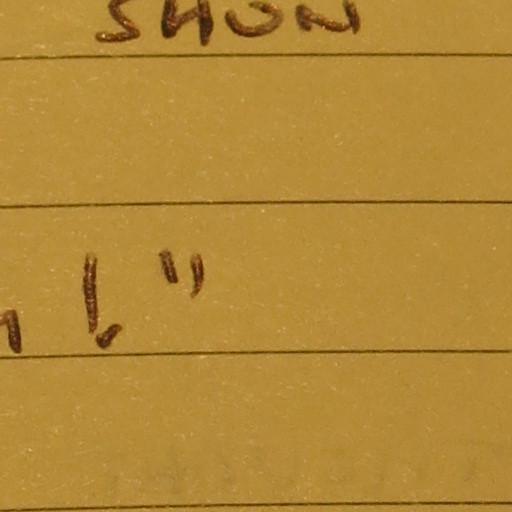 SHON
!"